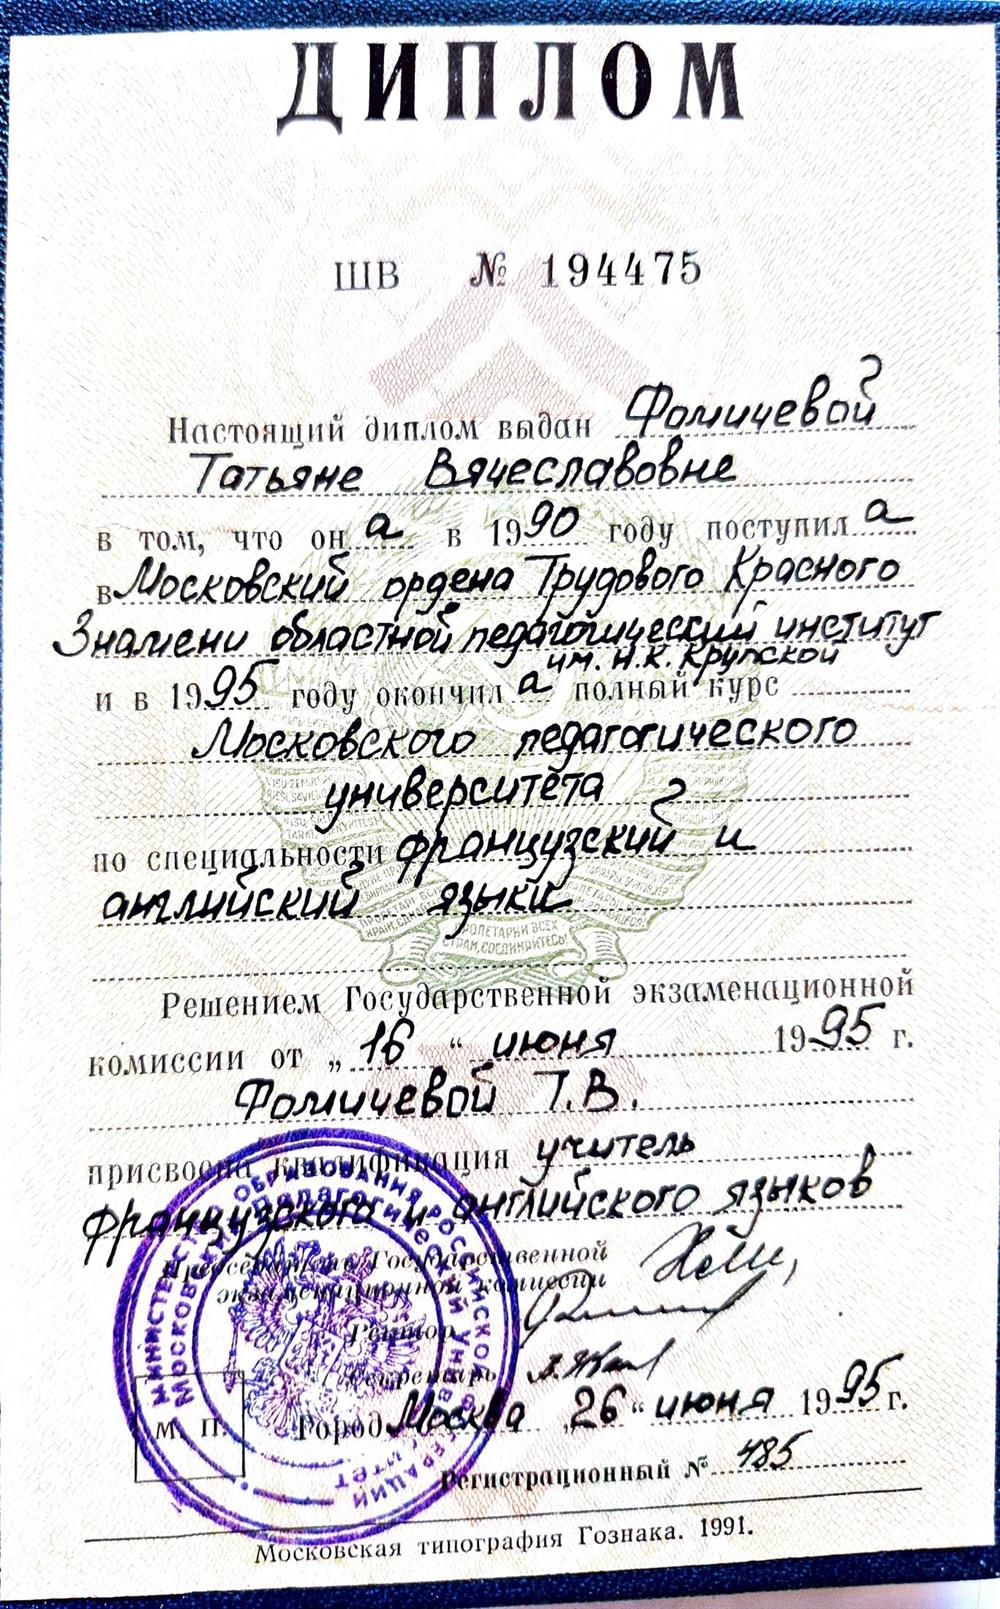 ДИПЛОМ
ШВ № 194475
Настоящий диплом выдан Фомичевой
Татьяне Вячеславовне
в том, что он а в 1990 году поступил а
в Московский ордена Трудового Красного
Знамени областной педагогический институт
им. Н.К. Крупской
и в 1995 году окончил а полный курс
Московского педагогического
университета
по специальности французский и
английский языки
ПРОЛЕТАРИИ ВСЕХ
СТРАН, СОЕДИНЯЙТЕСЬ!
Решением Государственной экзаменационной
комиссии от „16“ июня 1995 г.
Фомичевой Т.В.
присвоена квалификация учитель
французского и английского языков
Председатель Государственной
экзаменационной комиссии
Ректор
Секретарь
Город Москва „26“ июня 1995 г.
М. П.
Регистрационный № 485
МИНИСТЕРСТВО ОБРАЗОВАНИЯ РОССИЙСКОЙ ФЕДЕРАЦИИ
МОСКОВСКИЙ ПЕДАГОГИЧЕСКИЙ УНИВЕРСИТЕТ
Московская типография Гознака. 1991.